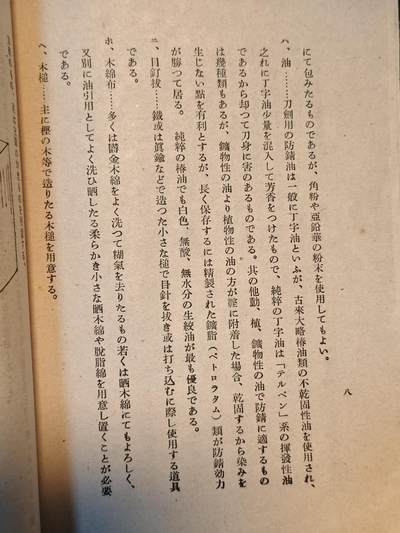 にて包みたるものであるが、角粉や亜鉛華の粉末を使用してもよい。
ハ、油……刀劍用の防錆油は一般に丁字油といふが、古來大略椿油類の不乾固性油を使用され、
之れに丁字油少量を混入して芳香をつけたもので、純粹の丁字油は「テルペン」系の揮發性油
であるから却つて刀身に害のあるものである。其の他動、植、鑛物性の油で防錆に適するもの
は幾種類もあるが、鑛物性の油より植物性の油の方が鞘に附着した場合、乾固するから染みを
生じない點を有利とするが、長く保存するには精製された鑛脂（ペトロラタム）類が防錆効力
が勝つて居る。　純粹の椿油でも白色、無酸、無水分の生絞油が最も優良である。
ニ、目釘拔……鐵或は眞鍮などで造つた小さな槌で目針を拔き或は打ち込むに際し使用する道具
である。
ホ、木綿布……多くは欝金木綿をよく洗つて糊氣を去りたるもの若くは晒木綿にてもよろしく、
又別に油引用としてよく洗ひ晒したる柔らかき小さな晒木綿や脫脂綿を用意し置くことが必要
である。
ヘ、木槌……主に樫の木等で造りたる木槌を用意する。
八